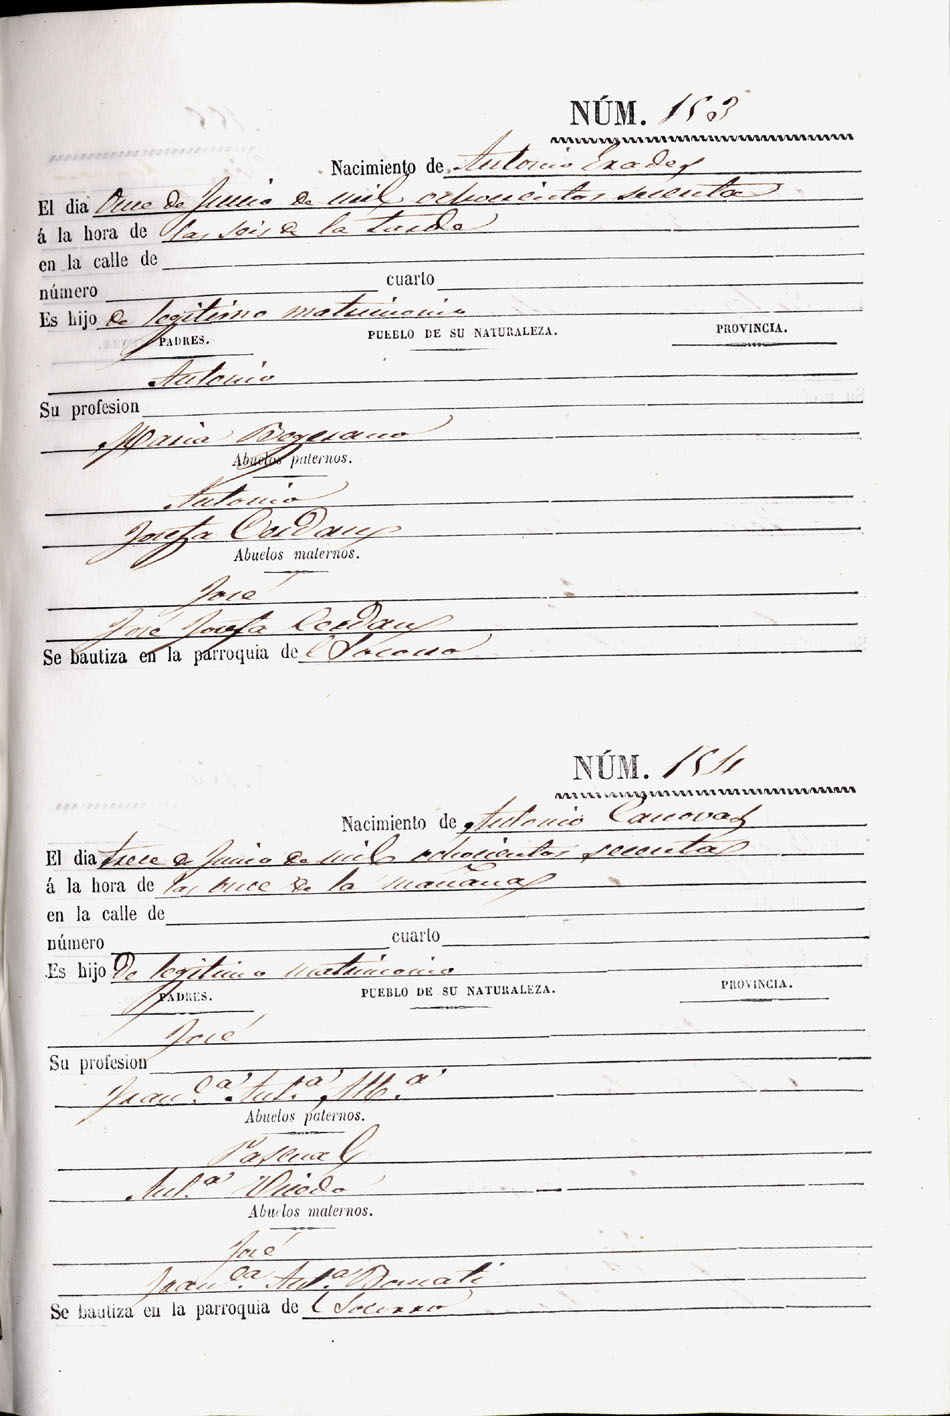 NÚM. 153
Nacimiento de Antonio Exadex
El dia Once de Junio de mil ochocientos sesenta
á la hora de las seis de la tarde
en la calle de
número cuarto
Es hijo de legitimo matrimonio
PADRES. PUEBLO DE SU NATURALEZA. PROVINCIA.
Antonio
Su profesion
Maria
Abuelos paternos.
Antonio
Josefa Cerdan
Abuelos maternos.
José
José Josefa Cerdan
Se bautiza en la parroquia de el Socorro
NÚM. 154
Nacimiento de Antonio Canovas
El dia trece de Junio de mil ochocientos sesenta
á la hora de las once de la mañana
en la calle de
número cuarto
Es hijo De legitimo matrimonio
PADRES. PUEBLO DE SU NATURALEZA. PROVINCIA.
José
Su profesion
Fran.ca Ant.a M.a
Abuelos paternos.
Pascual
Ant.a Oviedo
Abuelos maternos.
José
Fran.ca Ant.a Bernati
Se bautiza en la parroquia de el Socorro